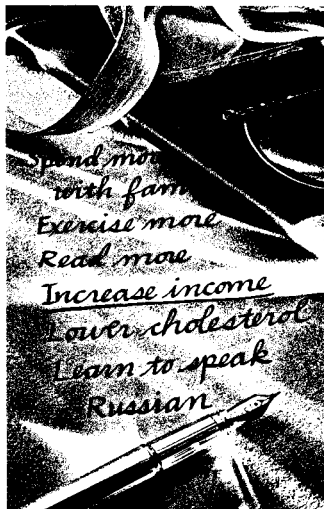 Spend mor
with fam
Exercise more
Read more
Increase income
Lower cholesterol
Learn to speak
Russian